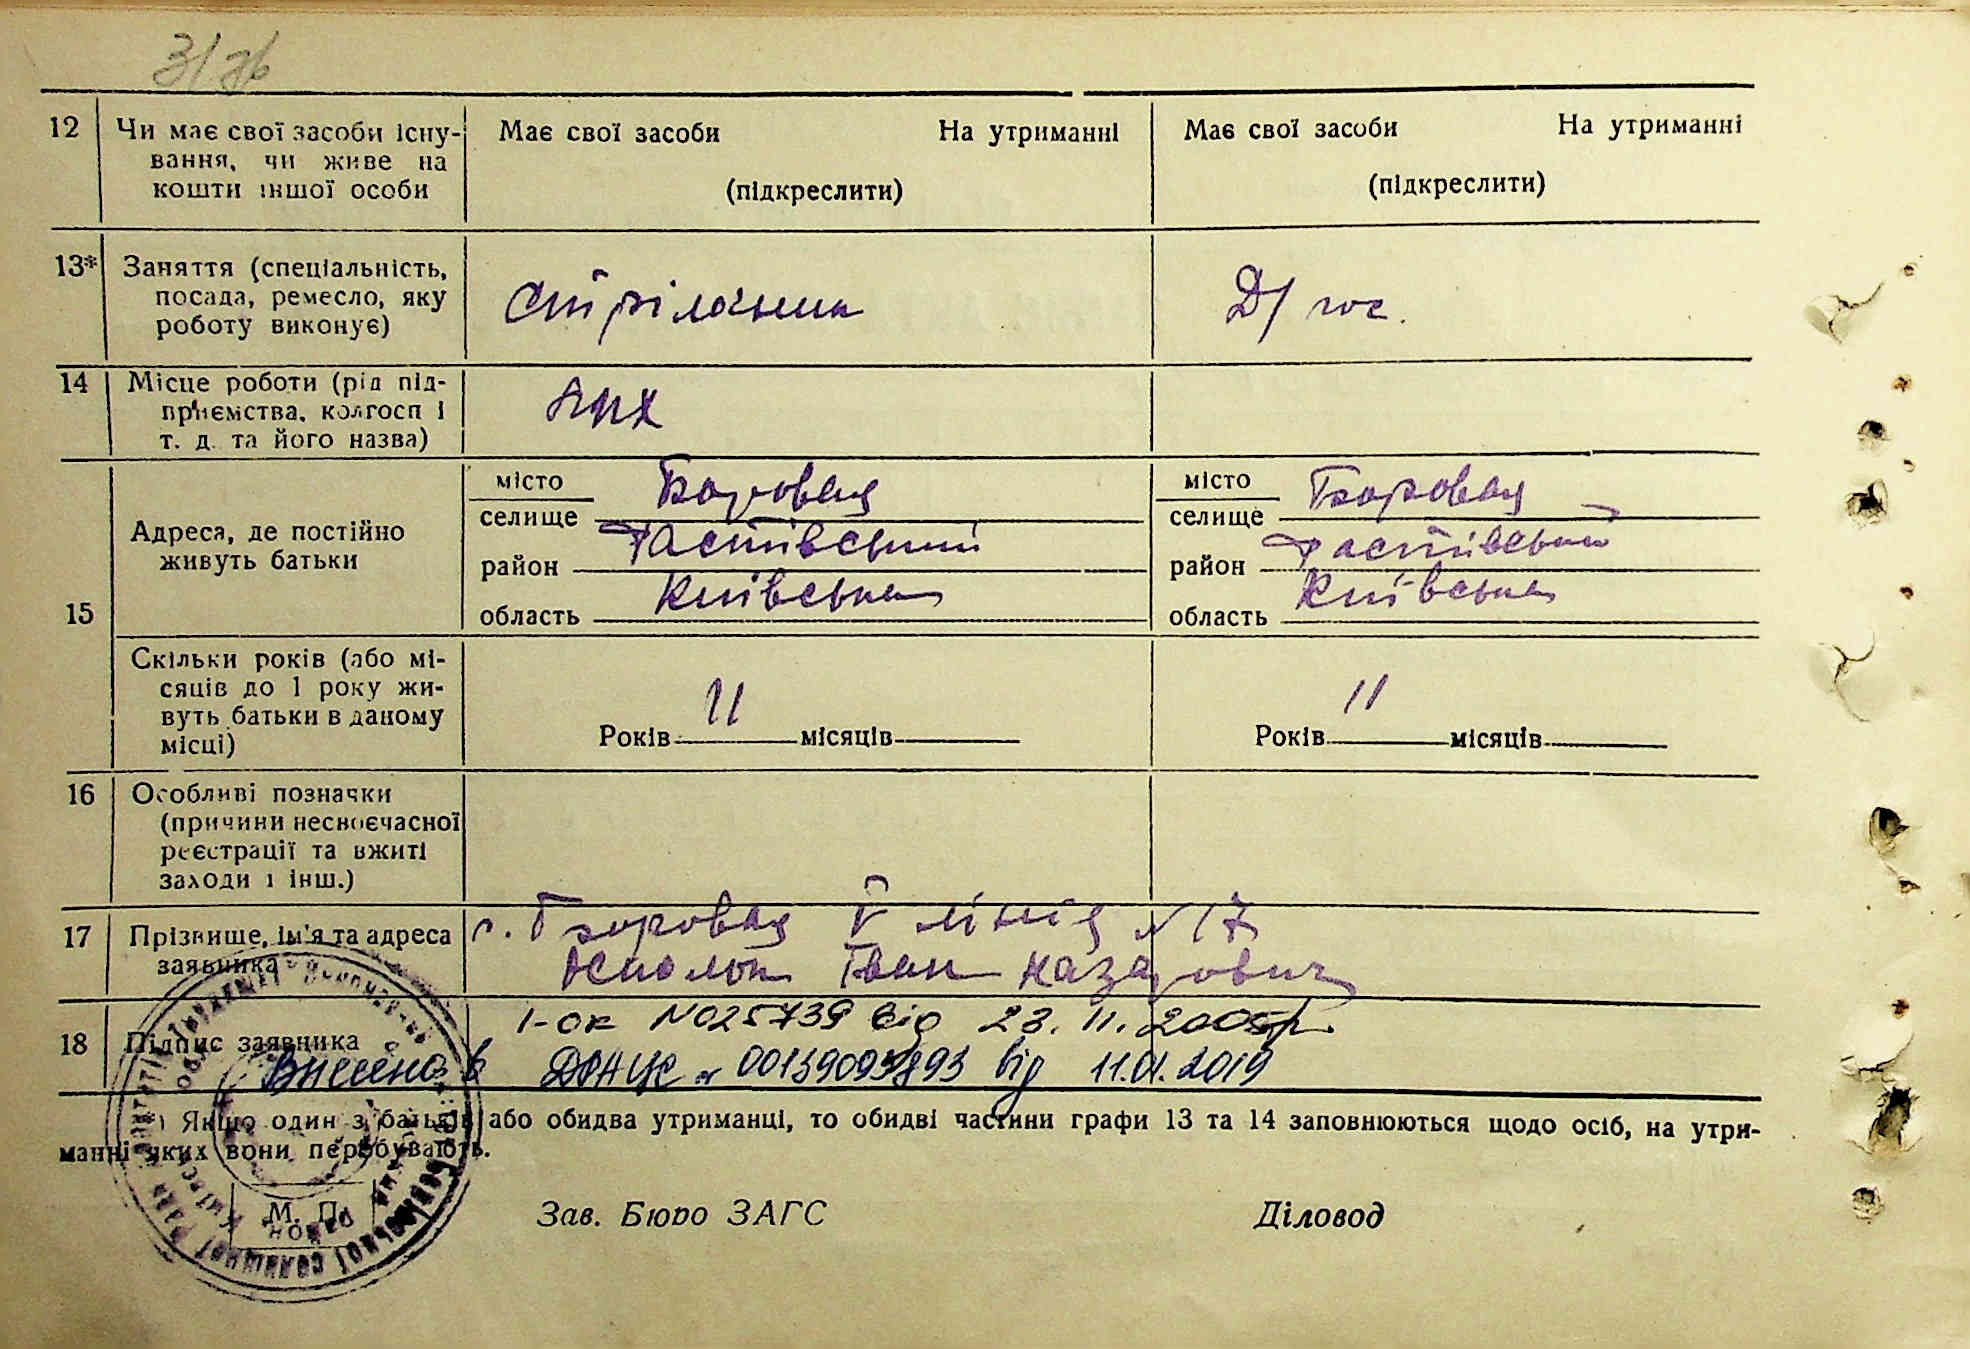 12 Чи має свої засоби існу-
вання, чи живе на
кошти іншої особи
Має свої засоби На утриманні
(підкреслити)
Має свої засоби На утриманні
(підкреслити)
13* Заняття (спеціальність,
посада, ремесло, яку
роботу виконує)
Д/гос.
14 Місце роботи (рід під-
приємства, колгосп і
т. д. та його назва)
15 Адреса, де постійно
живуть батьки
місто Боровая
селище
район Фастівський
область Київська
місто Боровая
селище
район Фастівський
область Київська
Скільки років (або мі-
сяців до 1 року жи-
вуть батьки в даному
місці)
Років 11 місяців
Років 11 місяців
16 Особливі позначки
(причини несвоєчасної
реєстрації та вжиті
заходи і інш.)
17 Прізвище, ім'я та адреса
заявника
с. Боровая V лінія N 17
Іван Назарович
18 Підпис заявника
І-ок №025739 від 23.11.2005р.
Внесено в ДРАЦС 00139095893 від 11.01.2019
*) Якщо один з батьків або обидва утриманці, то обидві частини графи 13 та 14 заповнюються щодо осіб, на утри-
манні яких вони перебувають.
М. П.
Зав. Бюро ЗАГС Діловод